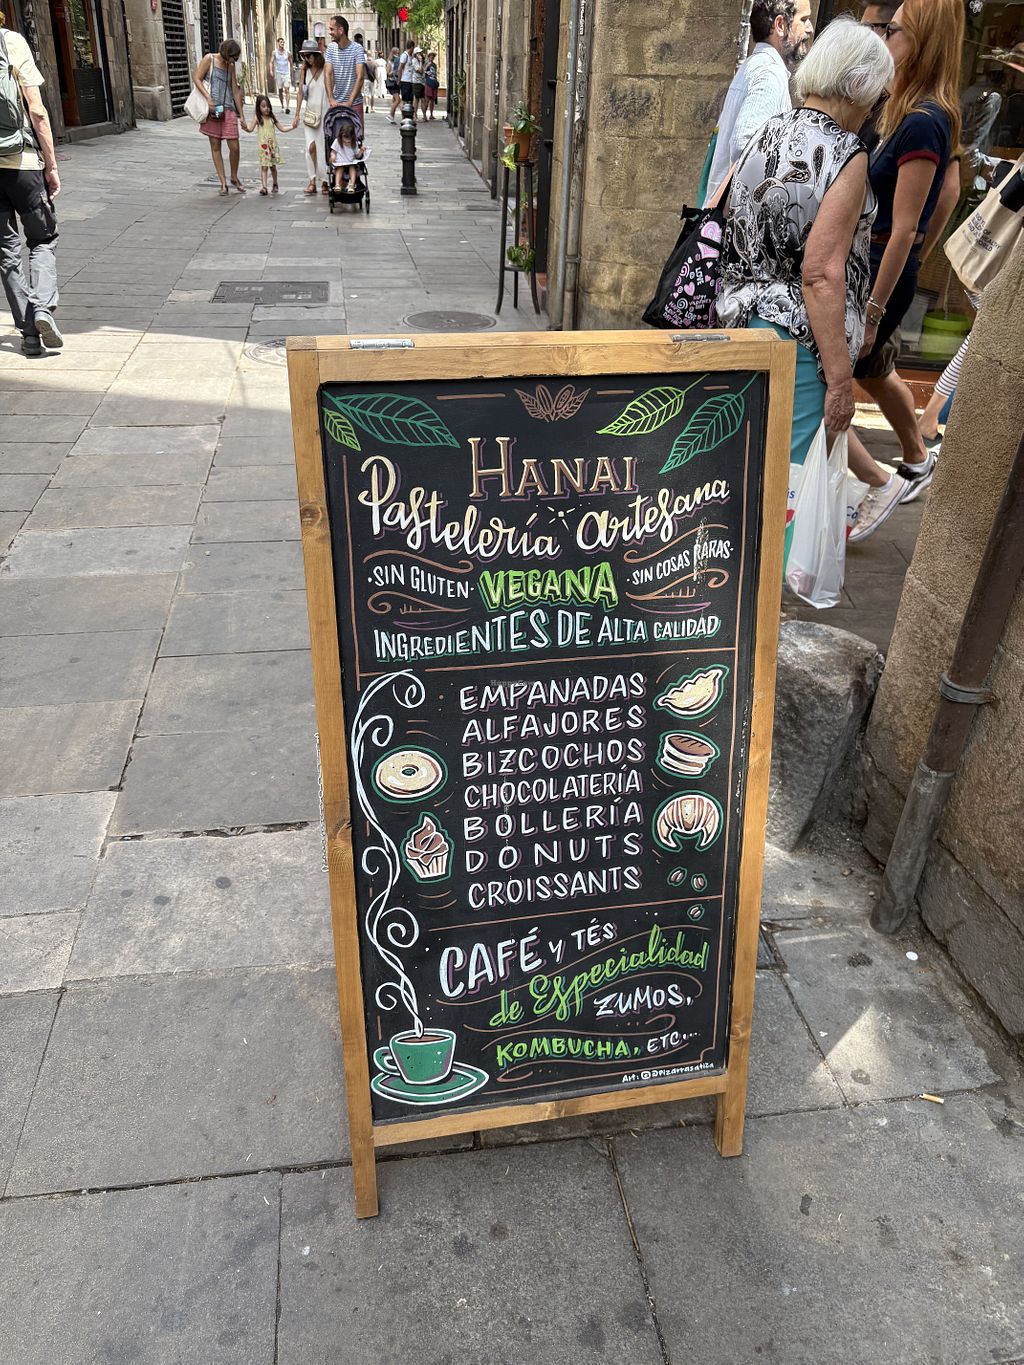 HANAI
Pastelería Artesana
·SIN GLUTEN· VEGANA ·SIN COSAS RARAS·
INGREDIENTES DE ALTA CALIDAD
EMPANADAS
ALFAJORES
BIZCOCHOS
CHOCOLATERÍA
BOLLERÍA
DONUTS
CROISSANTS
CAFÉ Y TÉS
de Especialidad
ZUMOS,
KOMBUCHA, ETC...
Art: @Pizarrasatiza